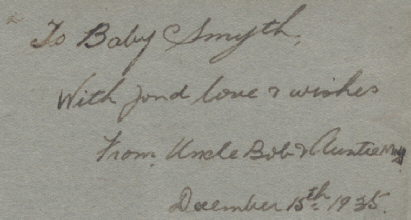 To Baby Smyth,
With fond love & wishes
From Uncle Bob & Auntie May
December 15th 1935.